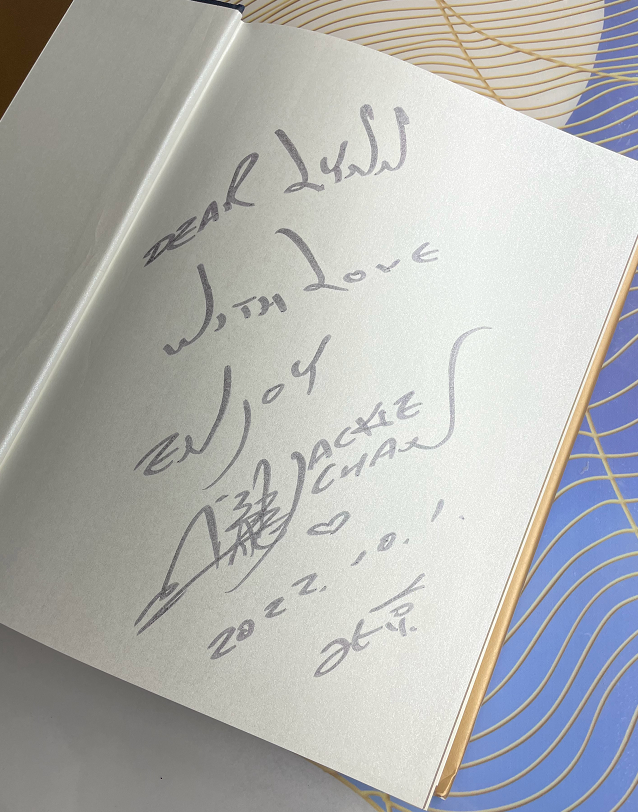 DEAR LYNN
WITH LOVE
ENJOY
JACKIE
CHAN
成龍
2022.10.1.
北京